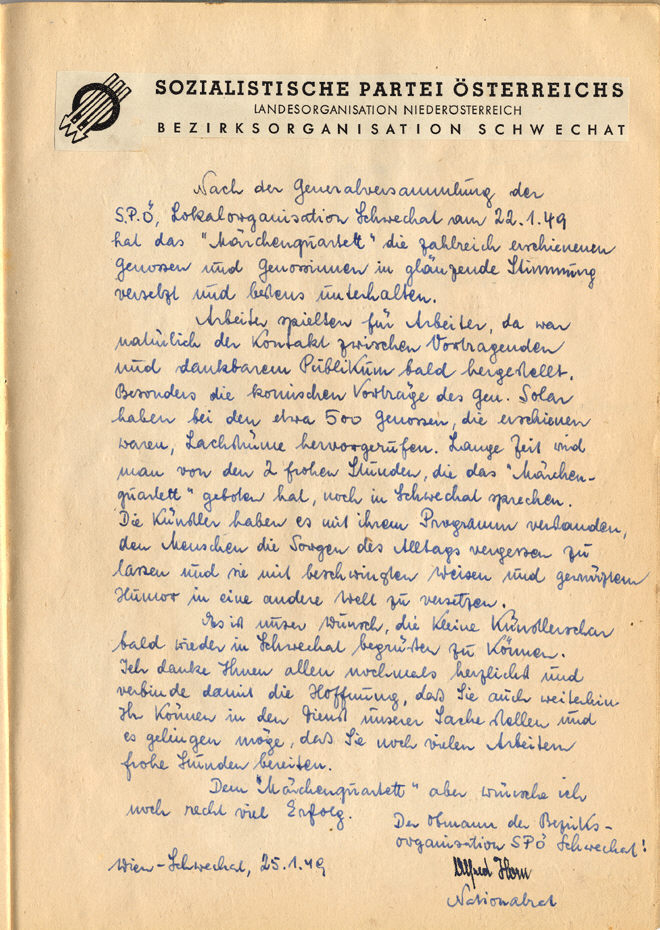 SOZIALISTISCHE PARTEI ÖSTERREICHS
LANDESORGANISATION NIEDERÖSTERREICH
BEZIRKSORGANISATION SCHWECHAT
Nach der Generalversammlung der
S.P.Ö, Lokalorganisation Schwechat vom 22.1.49
hat das "Märchenquartett" die zahlreich erschienenen
Genossen und Genossinnen in glänzende Stimmung
versetzt und bestens unterhalten.
Arbeiter spielten für Arbeiter, da war
natürlich der Kontakt zwischen Vortragenden
und dankbarem Publikum bald hergestellt.
Besonders die komischen Vorträge des Gen. Solar
haben bei den etwa 500 Genossen, die erschienen
waren, Lachstürme hervorgerufen. Lange Zeit wird
man von den 2 frohen Stunden, die das "Märchen-
quartett" geboten hat, noch in Schwechat sprechen.
Die Künstler haben es mit ihrem Programm verstanden,
den Menschen die Sorgen des Alltags vergessen zu
lassen und sie mit beschwingten Weisen und gewürztem
Humor in eine andere Welt zu versetzen.
Es ist unser Wunsch, die kleine Künstlerschar
bald wieder in Schwechat begrüßen zu können.
Ich danke Ihnen allen nochmals herzlichst und
verbinde damit die Hoffnung, daß Sie auch weiterhin
Ihr Können in den Dienst unserer Sache stellen und
es gelingen möge, daß Sie noch vielen Arbeitern
frohe Stunden bereiten.
Dem "Märchenquartett" aber wünsche ich
noch recht viel Erfolg.
Der Obmann der Bezirks-
organisation SPÖ Schwechat!
Wien-Schwechat, 25.1.49
Alfred Horn
Nationalrat